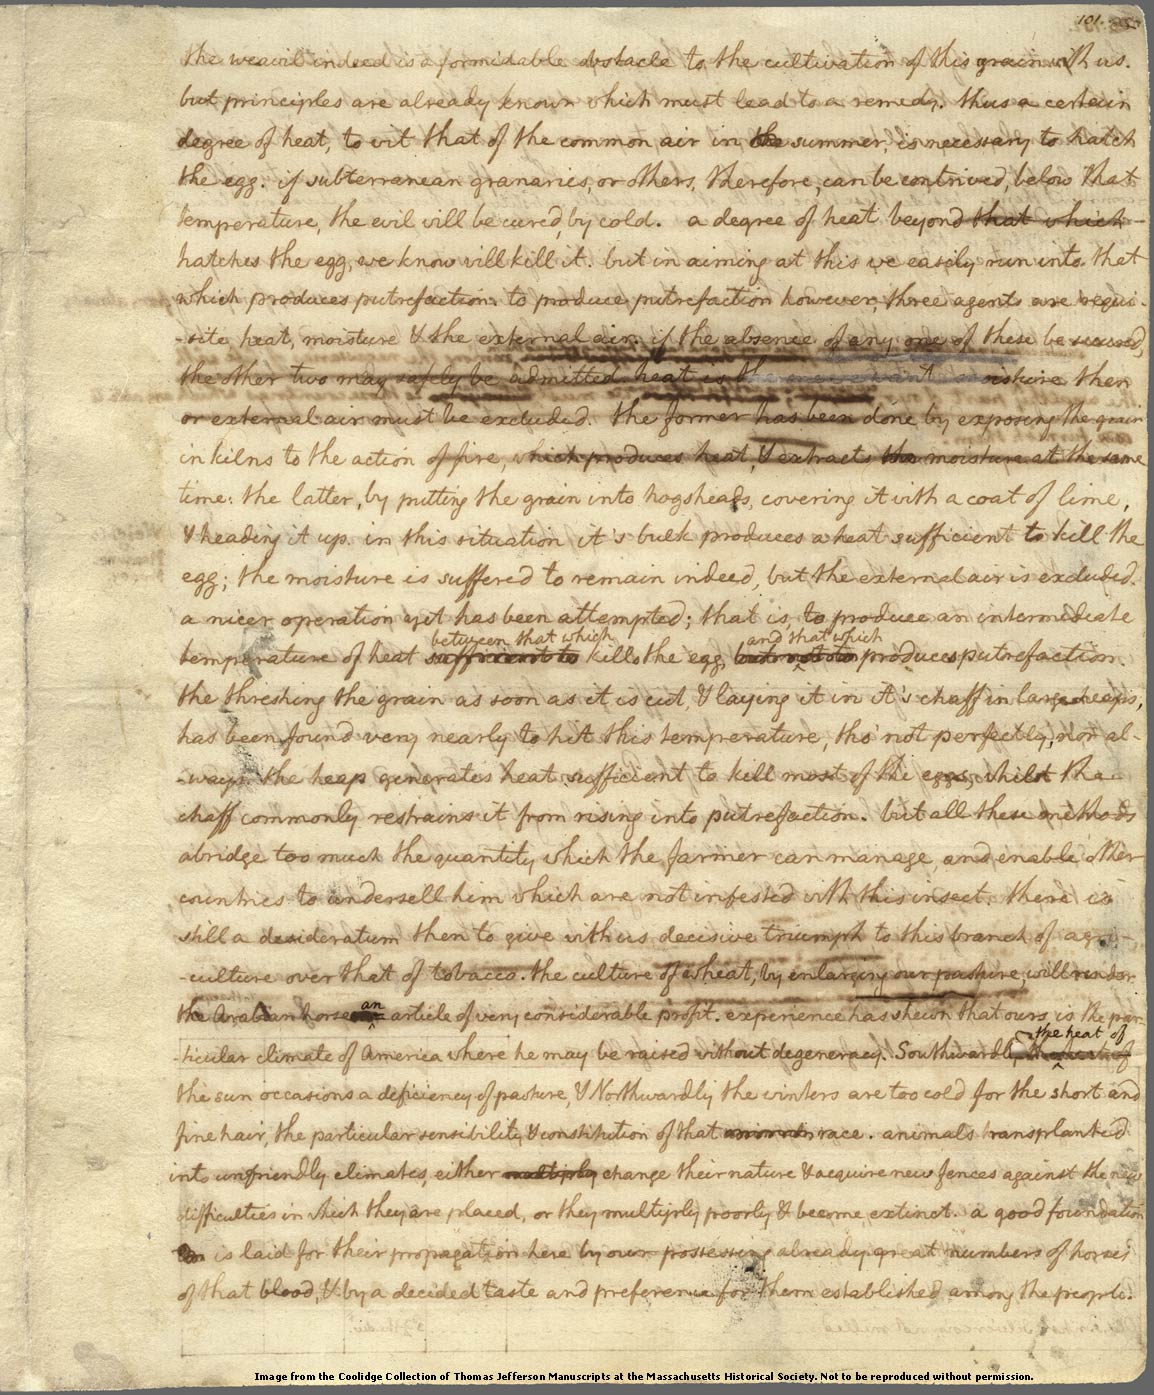 101.
the weavil indeed is a formidable obstacle to the cultivation of this grain with us.
but principles are already known which must lead to a remedy. thus a certain
degree of heat, to wit that of the common air in the summer, is necessary to hatch
the egg. if subterranean granaries, or others, therefore, can be contrived, below that
temperature, the evil will be cured, by cold. a degree of heat beyond that which
hatches the egg, we know will kill it. but in aiming at this we easily run into that
which produces putrefaction. to produce putrefaction however, three agents are requi-
-site, heat, moisture & the external air. if the absence of any one of these be secured,
the other two may safely be admitted. heat is the one we want. moisture then
or external air must be excluded. the former has been done by exposing the grain
in kilns to the action of fire, which produces heat, & extracts the moisture at the same
time: the latter, by putting the grain into hogsheads, covering it with a coat of lime,
& heading it up. in this situation it's bulk produces a heat sufficient to kill the
egg; the moisture is suffered to remain indeed, but the external air is excluded.
a nicer operation yet has been attempted; that is, to produce an intermediate
between that which and that which
temperature of heat sufficient to kills the egg, but not to produces putrefaction.
the threshing the grain as soon as it is cut, & laying it in it's chaff in large heaps,
has been found very nearly to hit this temperature, tho' not perfectly, nor al-
-ways. the heap generates heat sufficient to kill most of the eggs, whilst the
chaff commonly restrains it from rising into putrefaction. but all these methods
abridge too much the quantity which the farmer can manage, and enable other
countries to undersell him which are not infested with this insect. there is
still a desideratum then to give with us decisive triumph to this branch of agri-
-culture over that of tobacco. the culture of wheat, by enlarging our pasture, will render
an
the Arabian horse article of very considerable profit. experience has shewn that ours is the par-
the heat of
-ticular climate of America where he may be raised without degeneracy. Southwardly
the sun occasions a deficiency of pasture, & Northwardly the winters are too cold for the short and
fine hair, the particular sensibility & constitution of that race. animals transplanted
into unfriendly climates, either multiply change their nature & acquire new fences against the new
difficulties in which they are placed, or they multiply poorly & become extinct. a good foundation
is laid for their propagation here by our possessing already great numbers of horses
of that blood, & by a decided taste and preference for them established among the people.
Image from the Coolidge Collection of Thomas Jefferson Manuscripts at the Massachusetts Historical Society. Not to be reproduced without permission.